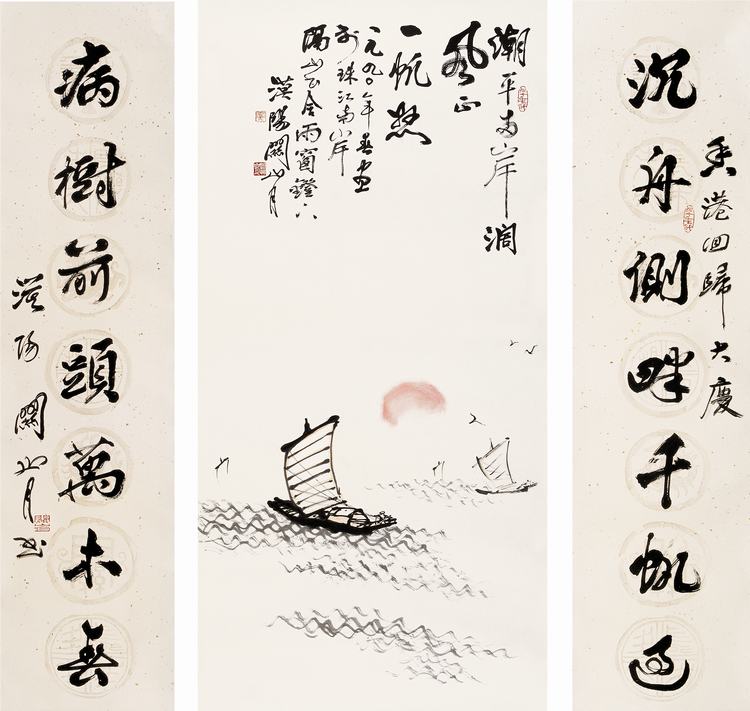 香港回歸大慶
沉舟側畔千帆過
潮平兩岸濶
風正
一帆懸
一九九〇年春畫
於珠江南岸
隔山書舍雨窗鐙下
漠陽關山月
病樹前頭萬木春
漠陽關山月書